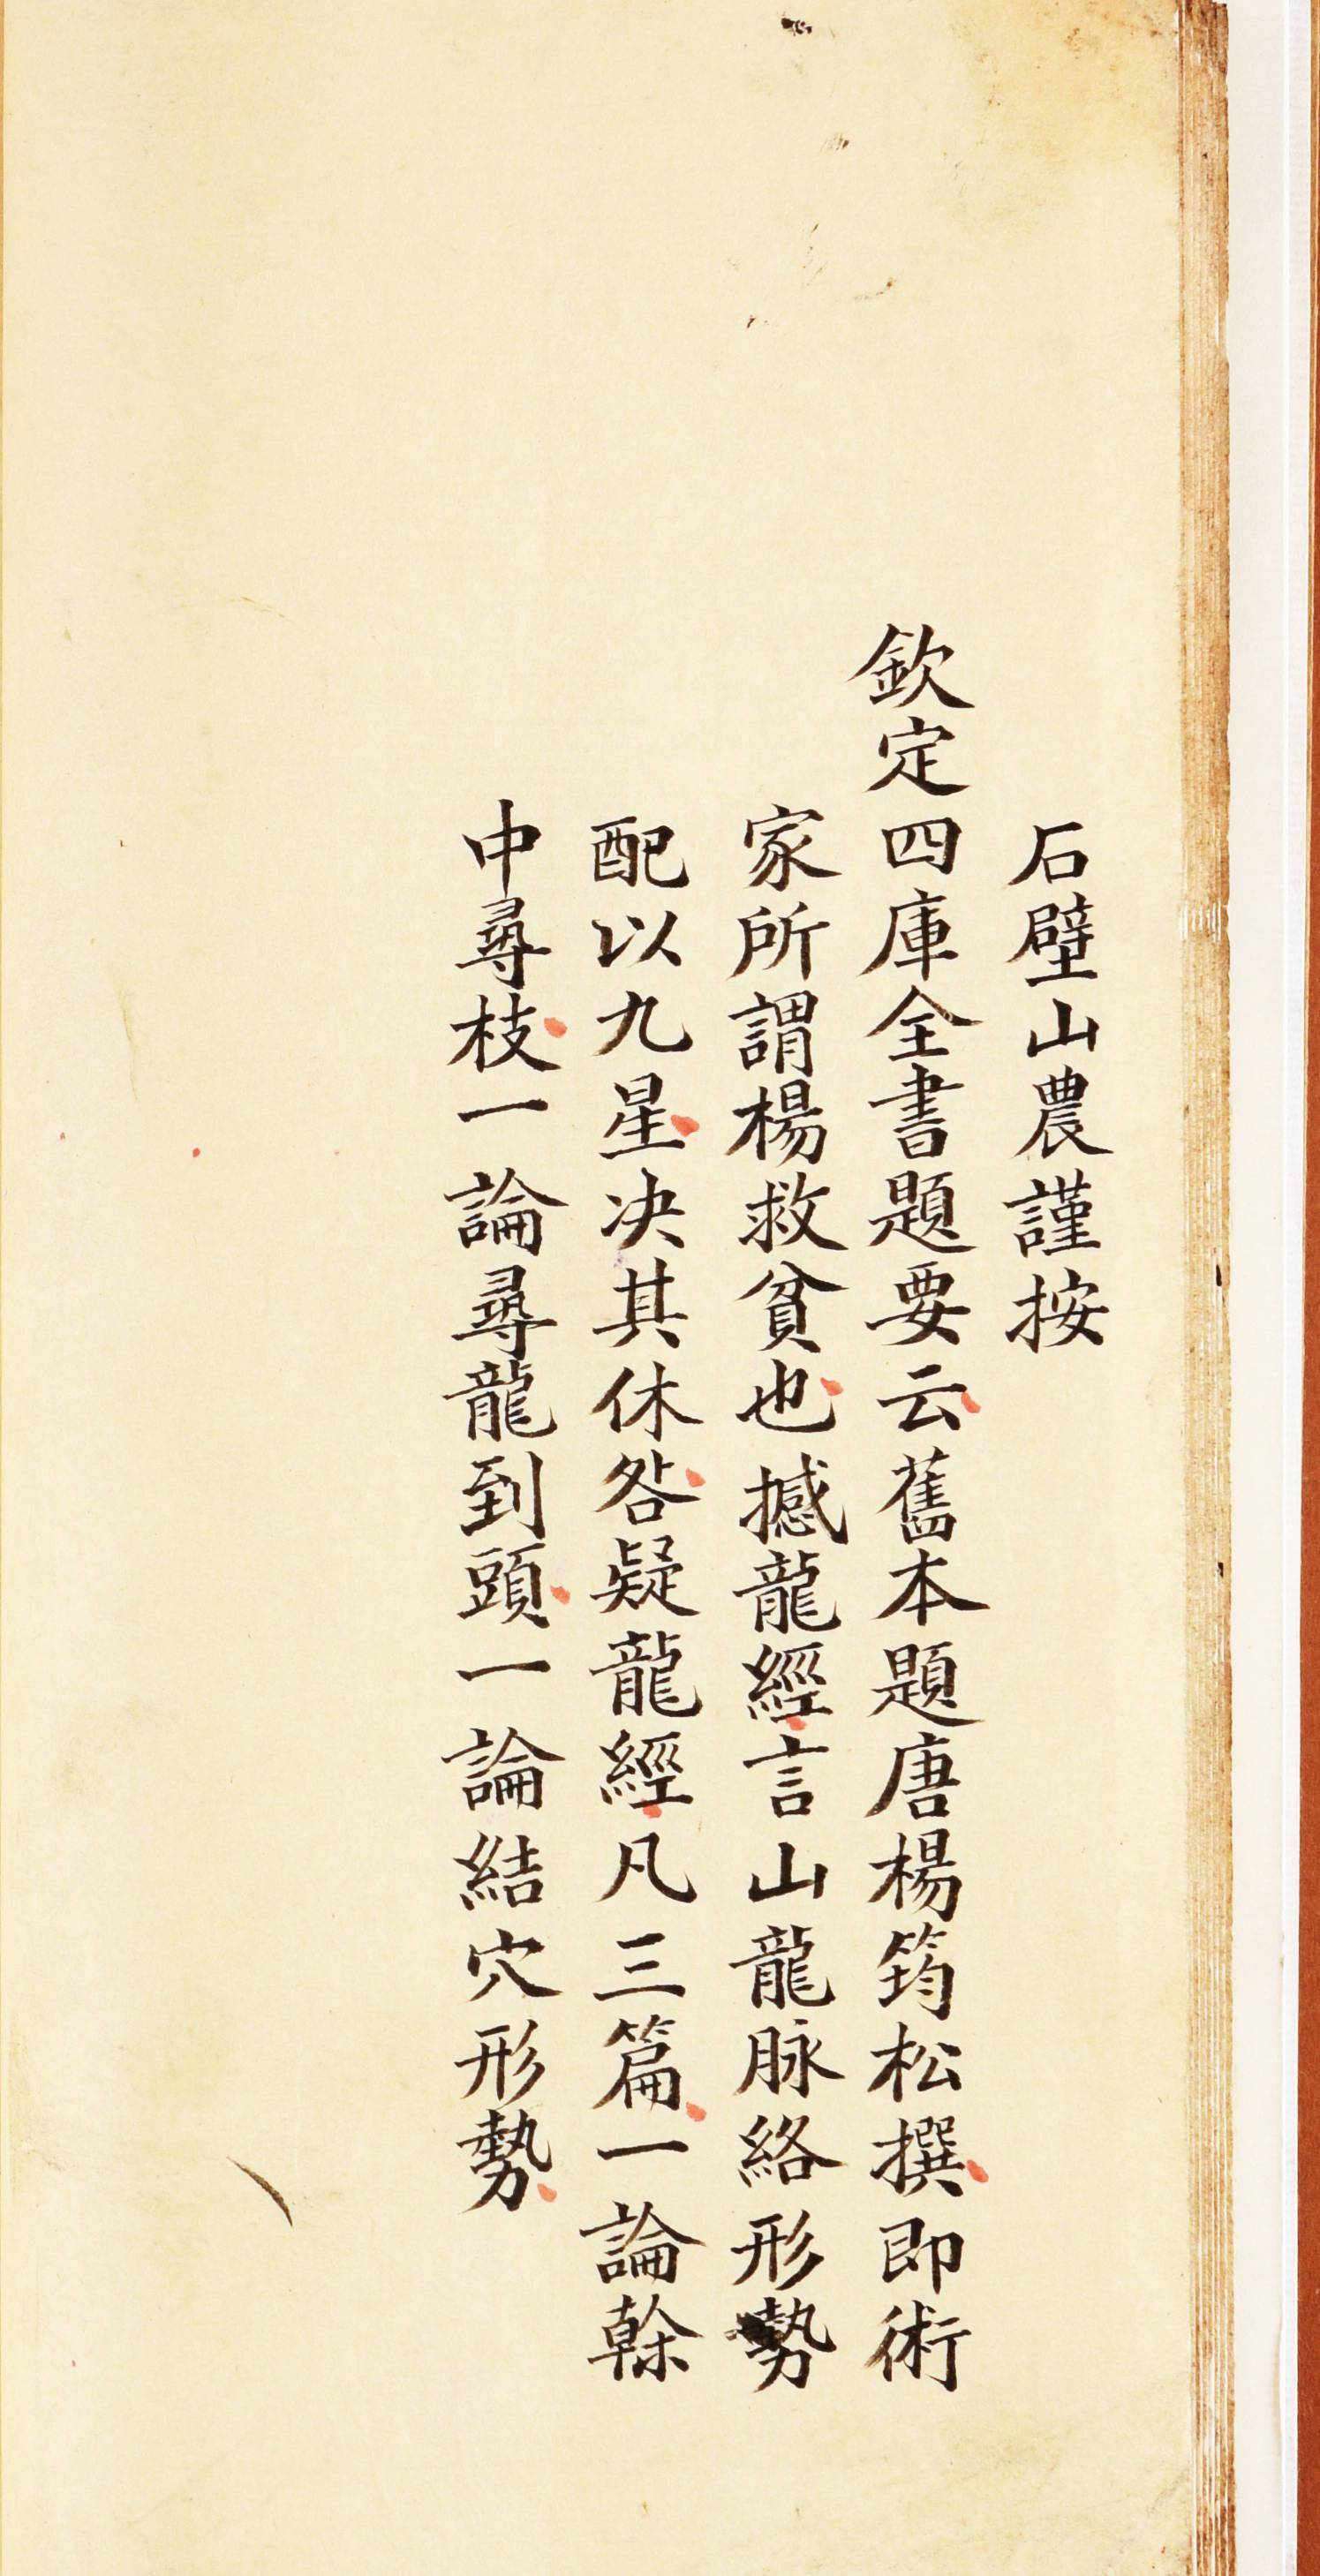 石壁山農謹按
欽定四庫全書題要云舊本題唐楊筠松撰即術
家所謂楊救貧也撼龍經言山龍脉絡形勢
配以九星决其休咎疑龍經凡三篇一論榦
中尋枝一論尋龍到頭一論結穴形勢